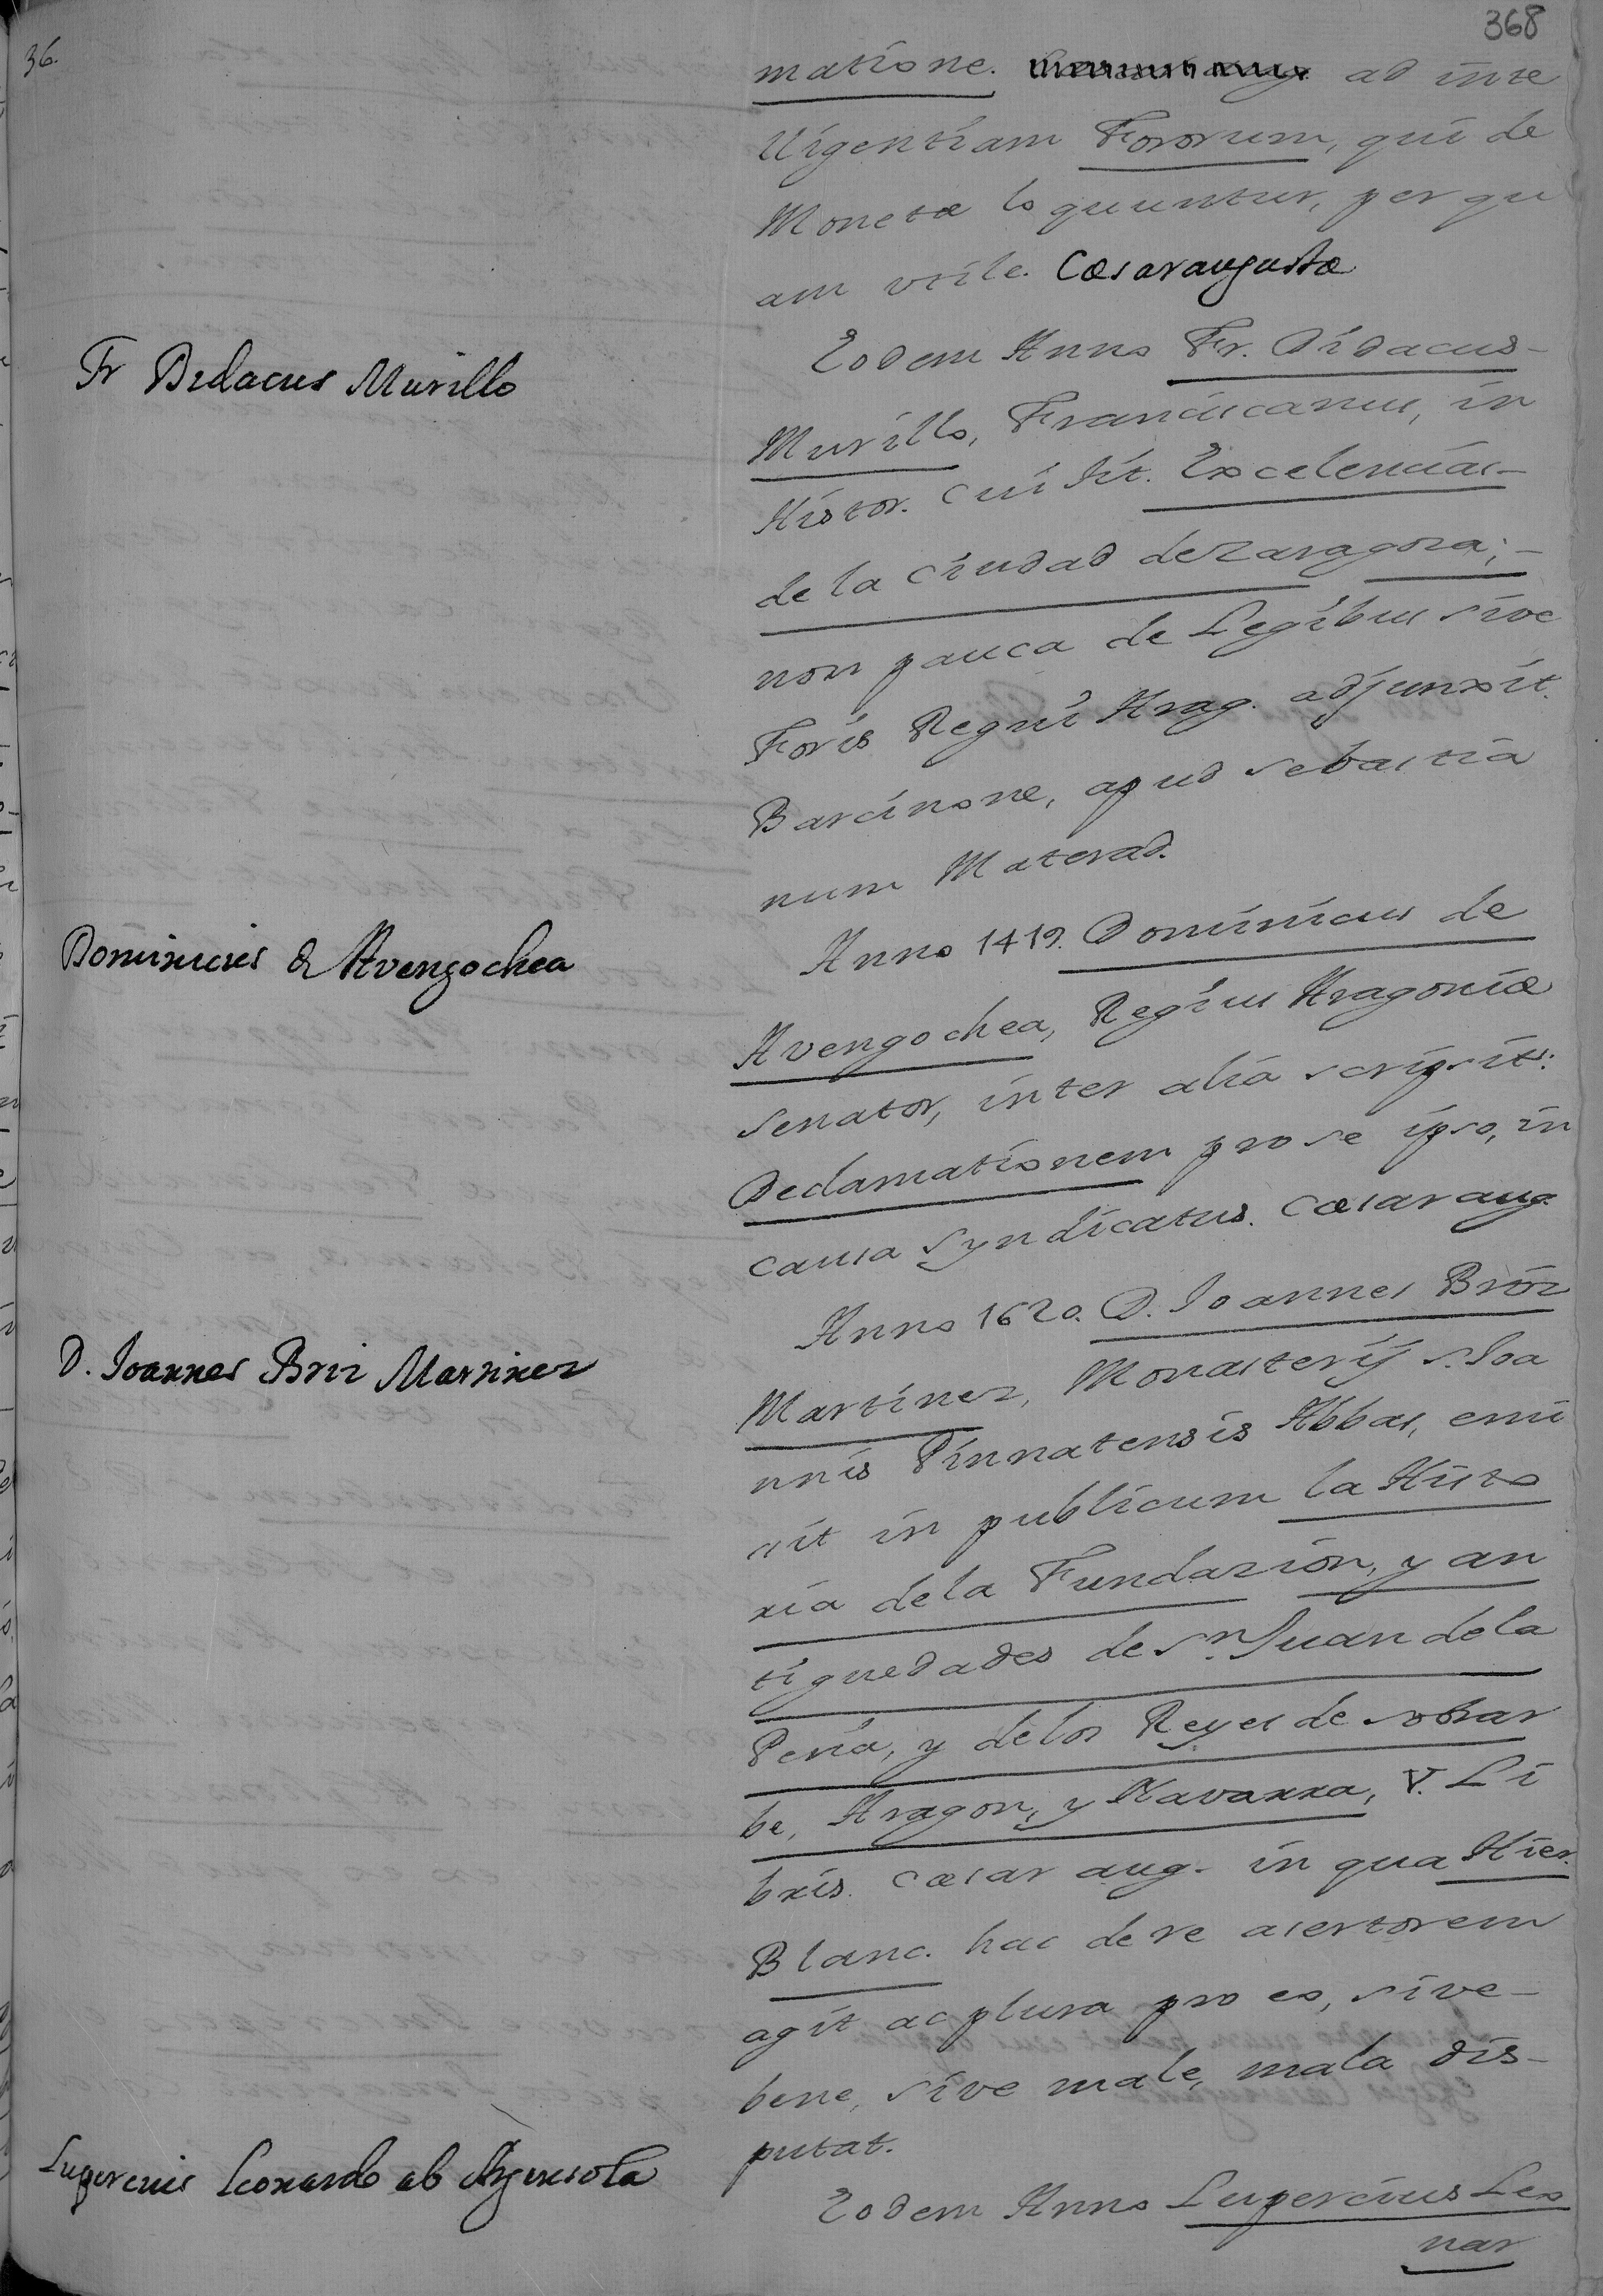 368
36.
matione. ad inte
lligentiam Fororum, qui de
Moneta loquuntur, per qu
am vtile. Cæsaraugustæ
Eodem Anno Fr. Didacus
Fr Didacus Murillo
Murillo, Franciscanus, in
Histor. cui tit. Excelencias
de la Ciudad de Zaragoza;
non pauca de Legibus sive
Foris Regni Arag. adjunxit.
Barcinone, apud Sebastia
num Materad.
Anno 1419. Dominicus de
Dominicus de Avengochea
Avengochea, Regius Aragoniæ
Senator, inter alia scripsit:
Declamationem pro se ipso, in
causa Syndicatus. Cæsaraug.
Anno 1620. D. Ioannes Briz
D. Ioannes Briz Martinez
Martinez, Monasterij S. Ioa
nnis Pinnatensis Abbas, emi
sit in publicum la Histo
ria de la Fundazion, y an
tiguedades de Sn. Juan de la
Peña, y de los Reyes de Sobrar
be, Aragon, y Navarra, V. Li
bris. Cæsaraug. in qua Hier.
Blanc. hac de re asertorem
agit ac plura pro eo, sive
bene, sive male, mala dis-
putat.
Lupercius Leonardo ab Argensola
Eodem Anno Lupercius Leo
nar